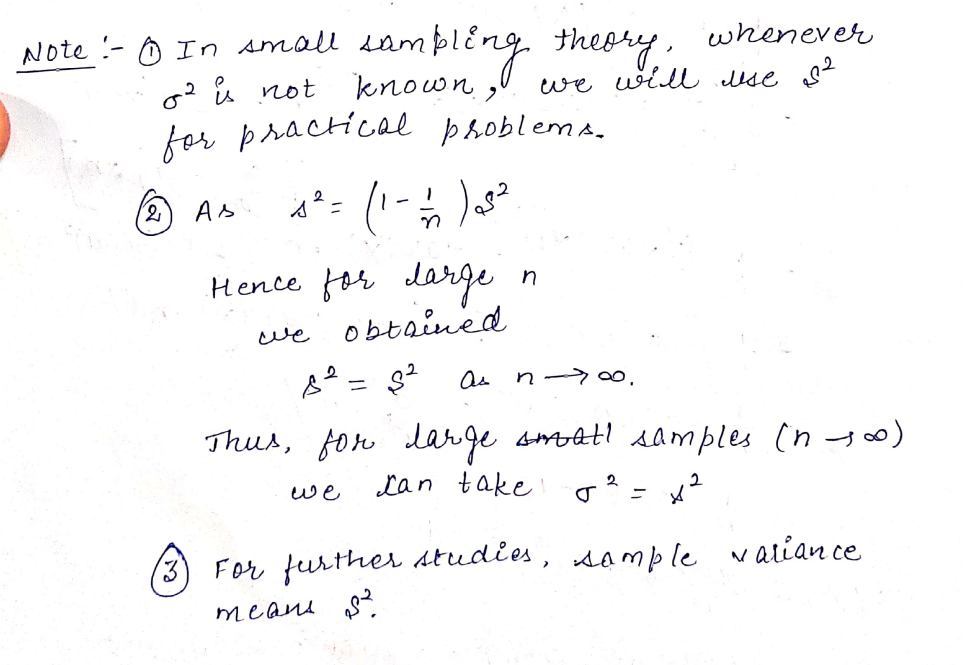 Note :- ① In small sampling theory, whenever
σ² is not known, we will use S²
for practical problems.
② As s² = (1 - 1/n) S²
Hence for large n
we obtained
s² = S² as n → ∞.
Thus, for large ~~small~~ samples (n → ∞)
we can take σ² = s²
③ For further studies, sample variance
means S².